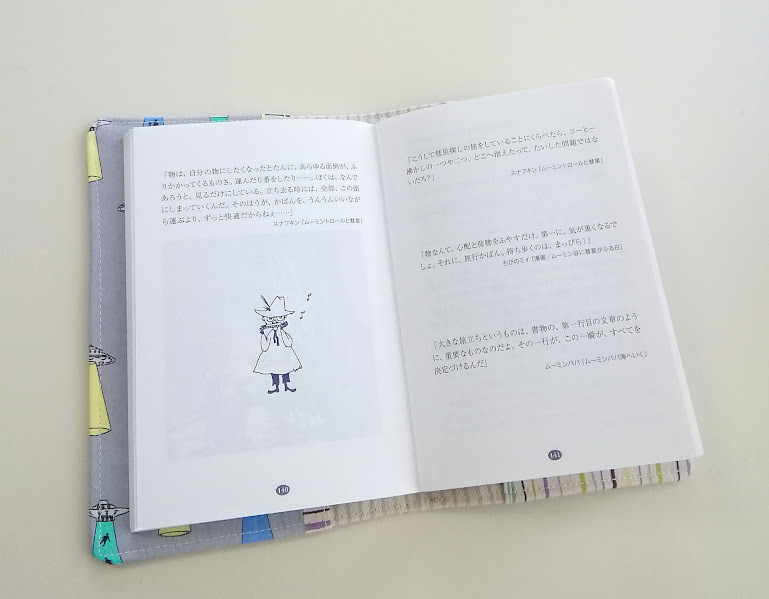 「物は、自分の物にしたくなったとたんに、あらゆる面倒が、ふ
りかかってくるものさ。運んだり番をしたり……。ぼくは、なんで
あろうと、見るだけにしている。立ち去る時には、全部、この頭
にしまっていくんだ。そのほうが、かばんを、うんうんいいなが
ら運ぶより、ずっと快適だからねぇ……」
スナフキン「ムーミントロールと彗星」
140
「こうして彗星探しの旅をしていることにくらべたら、コーヒー
沸かしの一つや二つ、どこへ消えたって、たいした問題ではな
いだろ?」
スナフキン「ムーミントロールと彗星」
「物なんて、心配と荷物をふやすだけ。第一に、気が重くなるで
しょ。それに、旅行かばん。持ち歩くのは、まっぴら!」
ちびのミイ「漫画/ムーミン谷に彗星がふる日」
「大きな旅立ちというものは、書物の、第一行目の文章のよう
に、重要なものなのだよ。その一行が、この一瞬が、すべてを
決定づけるんだ」
ムーミンパパ「ムーミンパパ海へいく」
141